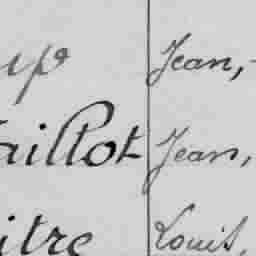 up Jean,
aillot Jean,
itre Louis,